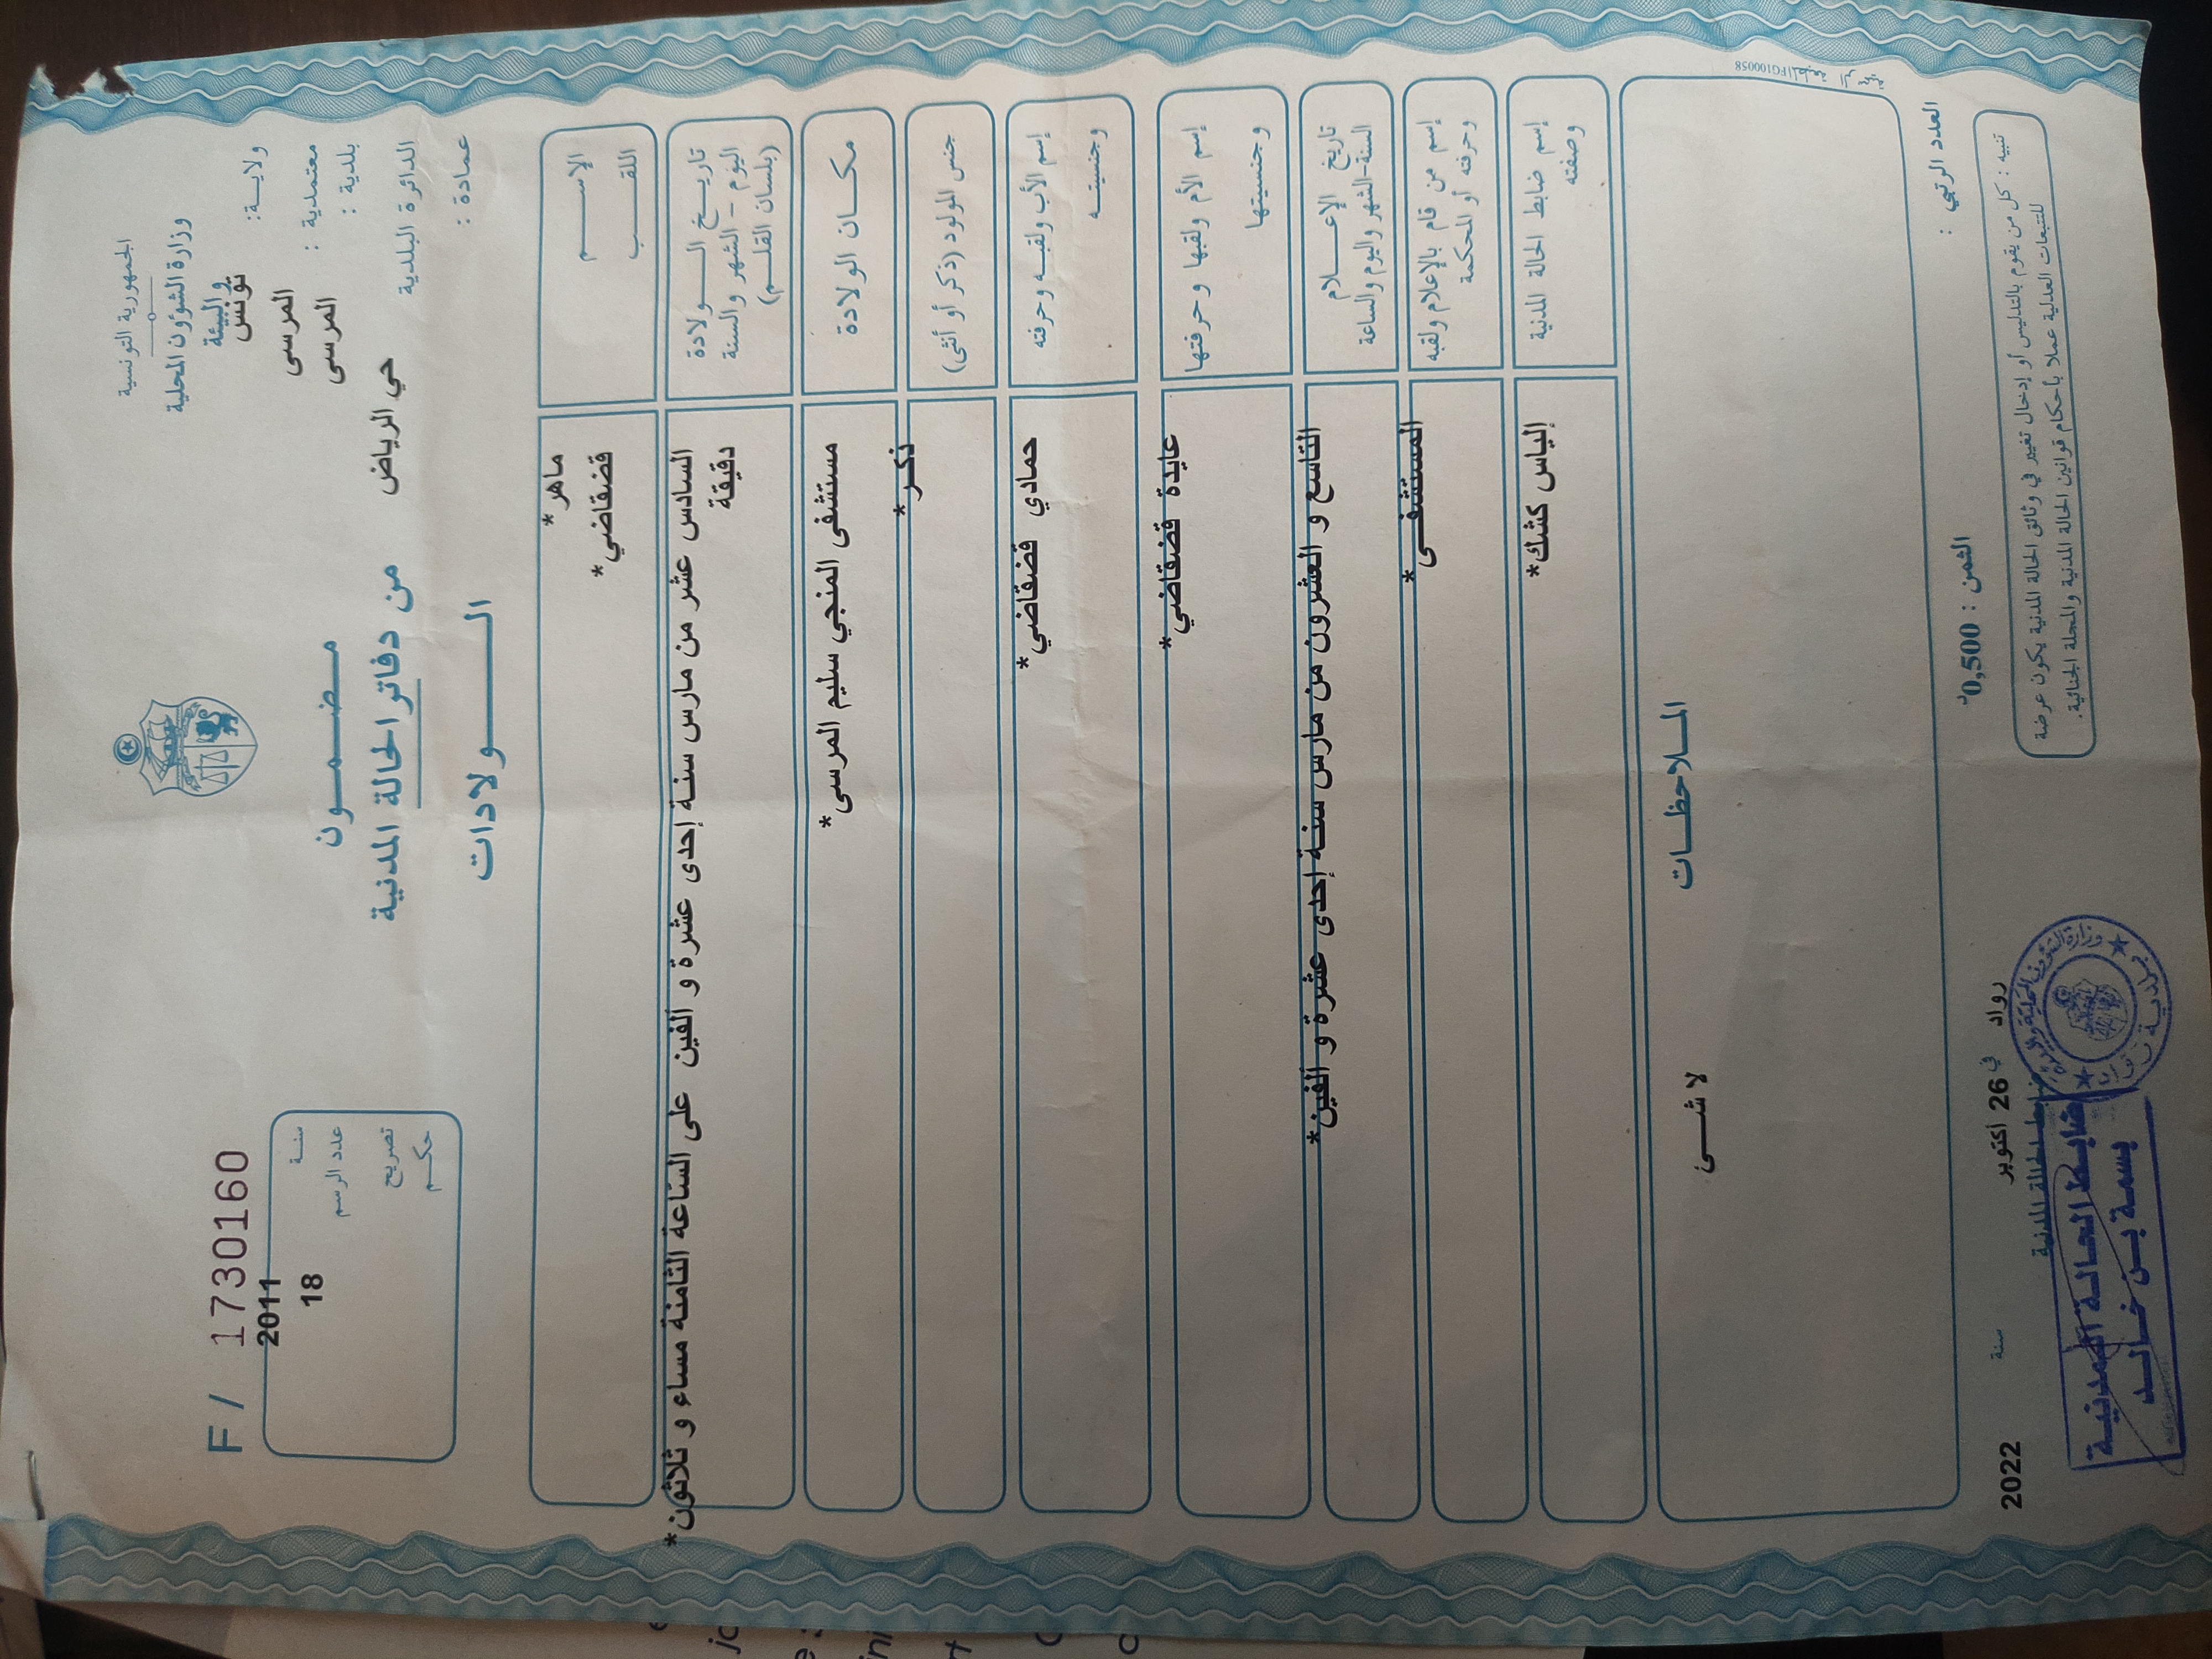 الجمهورية التونسية
وزارة الشؤون المحلية
والبيئة
ولايـــة:
تونس
معتمدية :
المرسى
بلدية :
المرسى
الدائرة البلدية
حي الرياض
عمادة :
مـضــمــون
من دفاتر الحالة المدنية
الـــــولادات
F / 17301160
سنـة
2011
عدد الرسم
18
تصريح
حكـم
الإســــم
ماهر *
اللقــــب
قضقاضي*
تاريــخ الــــولادة
اليوم - الشهر والسنة
(بلسان القلـــم)
السادس عشر من مارس سنـة إحدى عشرة و ألفين على الساعة الثامنة مساء و ثلاثون*
دقيقة
مكــان الولادة
مستشفى المنجي سليم المرسى*
جنس المولود (ذكر أو أنثى)
ذكـر*
إسم الأب ولقبـه وحرفته
وجنسيتــه
حمادي قضقاضي*
إسم الأم ولقبها وحرفتها
وجنسيتها
عايدة قضقاضي*
تاريخ الإعــلام
السنة-الشهر واليوم والساعة
التاسع و العشرون من مارس سنـة إحدى عشرة و ألفين*
إسم من قام بالإعلام ولقبه
وحرفته أو المحكمة
المستشفـى*
إسم ضابط الحالة المدنية
وصفته
إلياس كشك*
المـلاحظــات
لا شــئ
FG100058
العدد الرتبي :
الثمن : 0,500د
تنبيه : كل من يقوم بالتدليس أو إدخال تغيير في وثائق الحالة المدنية يكون عرضة
للتتبعات العدلية عملا بأحكام قوانين الحالة المدنية والمجلة الجنائية.
رواد في 26 أكتوبر سنة 2022
ضابط الحالة المدنية
ضابط الحالة المدنية
بسمة بن خالد